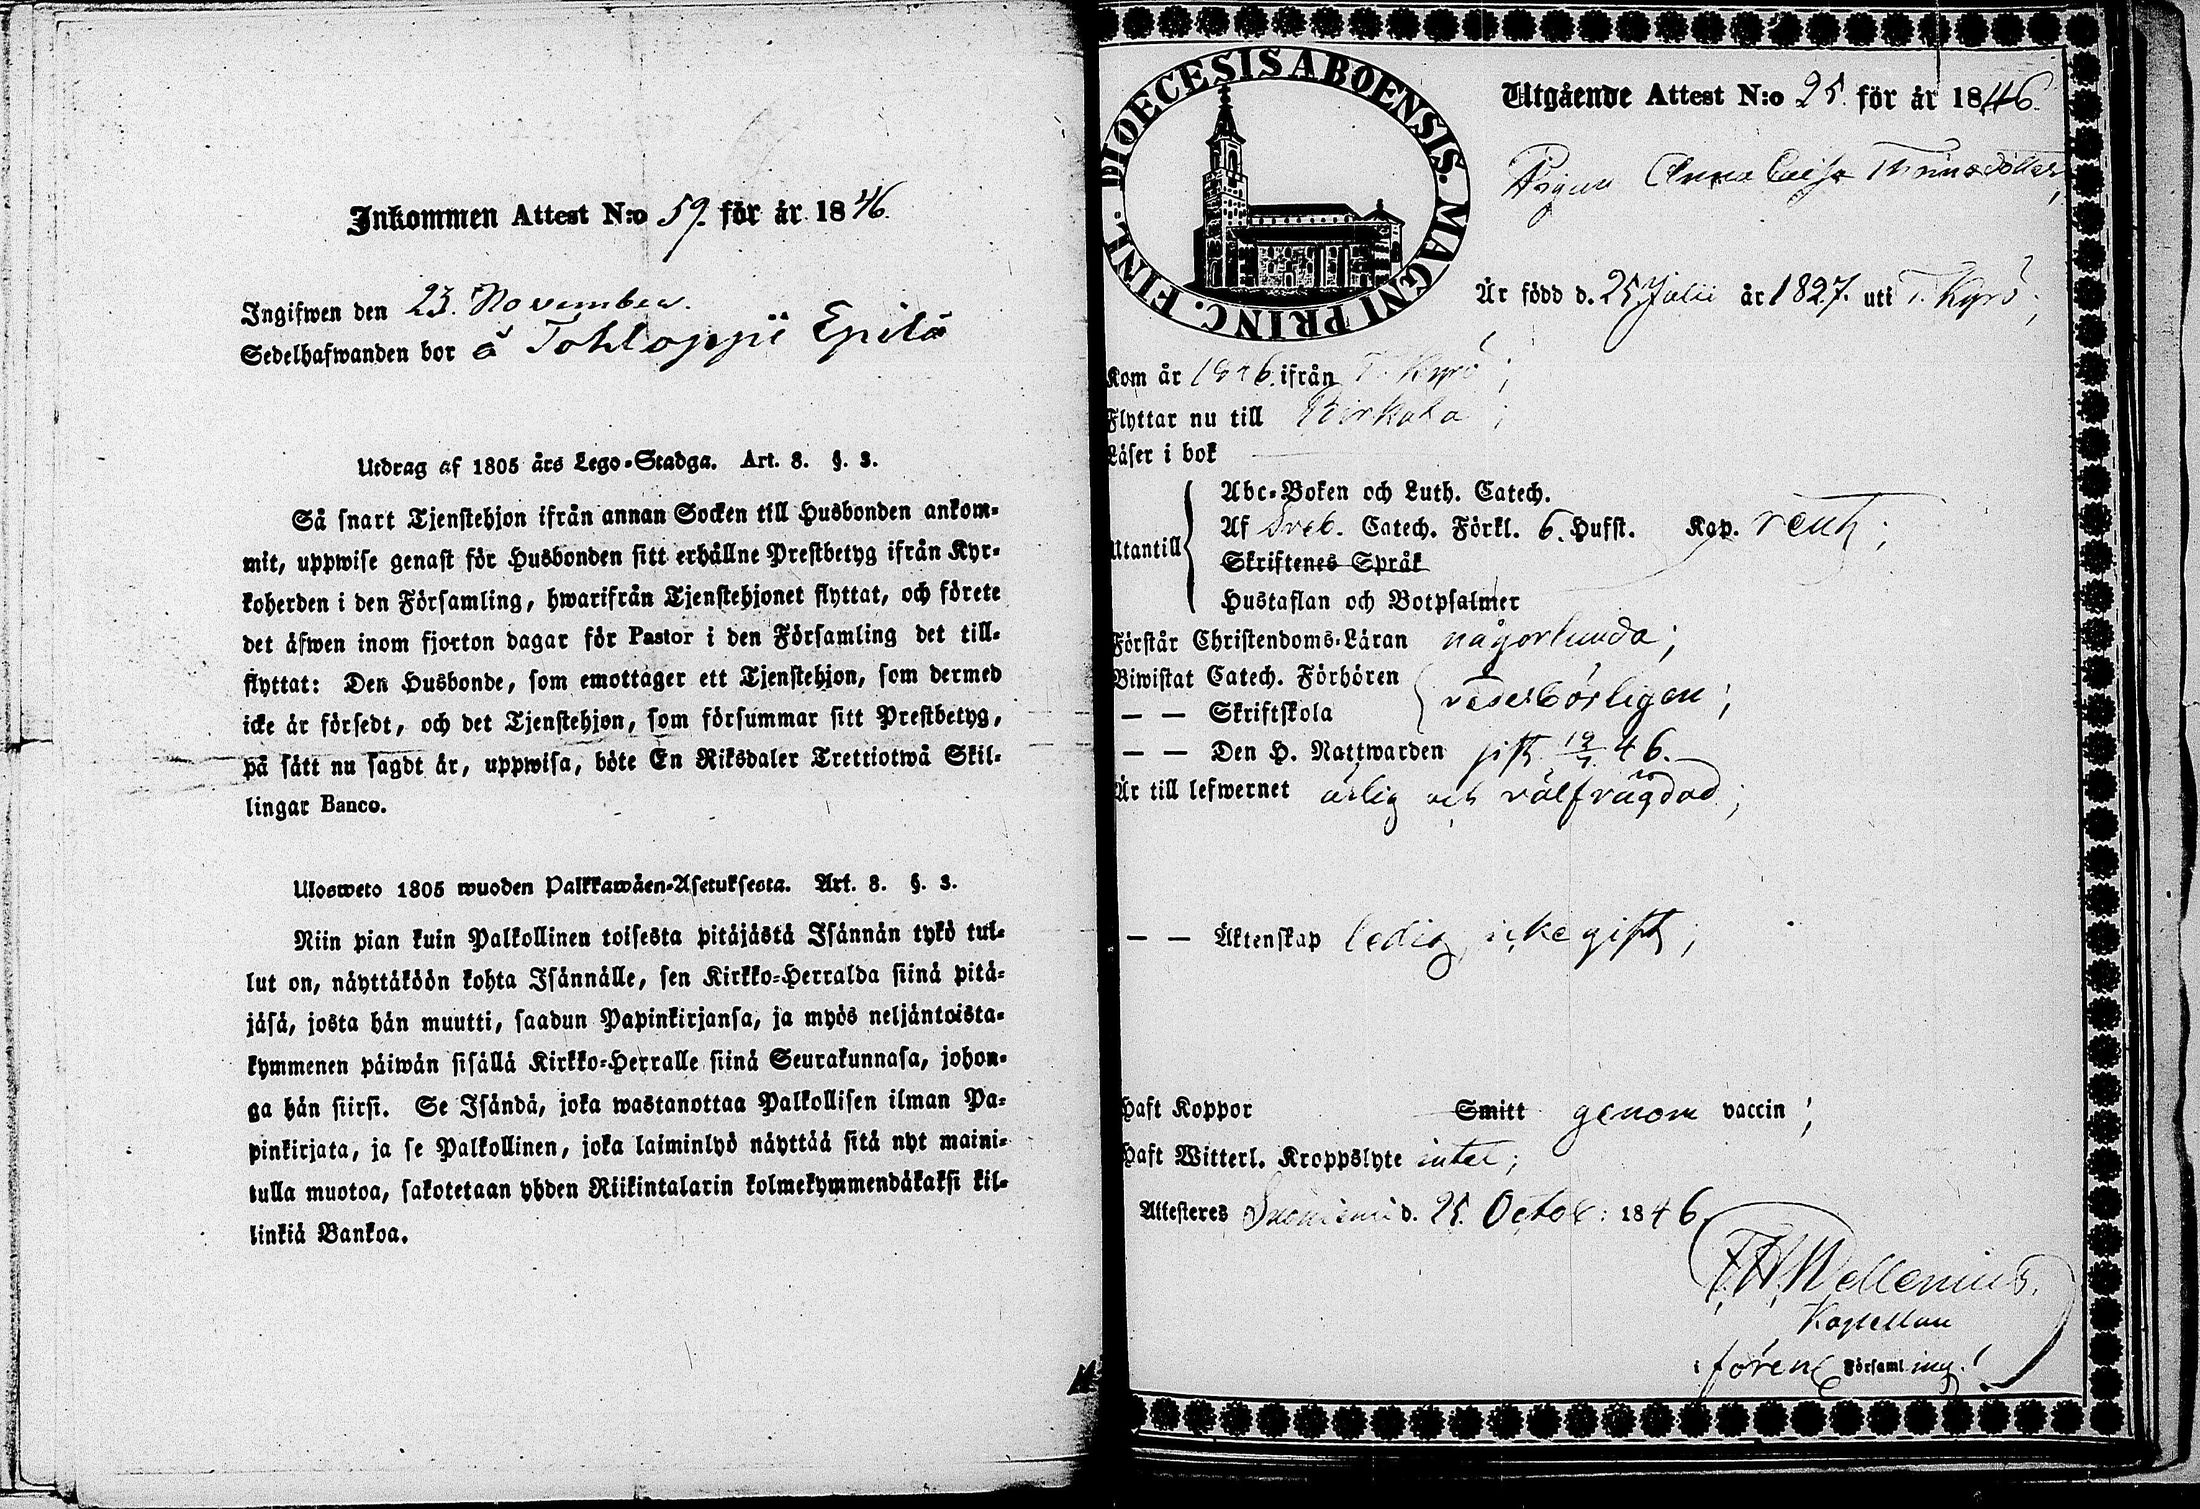 Inkommen Attest N:o 59. för år 1846.
Ingifwen den 23. November.
Sedelhafwanden bor å Tohloppi Epilä
Utdrag af 1805 års Lego-Stadga. Art. 8. §. 3.
Så snart Tjenstehjon ifrån annan Socken till Husbonden ankom-
mit, uppwise genast för Husbonden sitt erhållne Prestbetyg ifrån Kyr-
koherden i den Församling, hwarifrån Tjenstehjonet flyttat, och förete
det äfwen inom fjorton dagar för Pastor i den Församling det till-
flyttat: Den Husbonde, som emottager ett Tjenstehjon, som dermed
icke är försedt, och det Tjenstehjon, som försummar sitt Prestbetyg,
på sätt nu sagdt är, uppwisa, böte En Riksdaler Trettiotwå Skil-
lingar Banco.
Ulosweto 1805 wuoden Palkkawäen-Asetuksesta. Art. 8. §. 3.
Niin pian kuin Palkollinen toisesta pitäjästä Isännän tykö tul-
lut on, näyttäköön kohta Isännälle, sen Kirkko-Herralda siinä pitä-
jäsä, josta hän muutti, saadun Papinkirjansa, ja myös neljäntoista-
kymmenen päiwän sisällä Kirkko-Herralle siinä Seurakunnasa, johon-
ga hän siirsi. Se Isändä, joka wastanottaa Palkollisen ilman Pa-
pinkirjata, ja se Palkollinen, joka laiminlyö näyttää sitä nyt maini-
tulla muotoa, sakotetaan yhden Riikintalarin kolmekymmendäkaksi kil-
linkiä Bankoa.
DIOECESIS ABOENSIS. MAGNI PRINC. FINL.
Utgående Attest N:o 25. för år 1846.
Pigan Anna Caisa Thomasdotter,
Är född d. 25 Julii år 1827. uti T. Kyrö;
Kom år 1846. ifrån T. Kyrö;
Flyttar nu till Birkala;
Läser i bok
Utantill
Abc-Boken och Luth. Catech.
Af Sveb. Catech. Förkl. 6. Hufst. Kap. rent;
Skriftenes Språk
Hustaflan och Botpsalmer
Förstår Christendoms-Läran någorlunda;
Biwistat Catech. Förhören
— — Skriftskola
vederbörligen;
— — Den H. Nattwarden sist 19/7 46.
Är till lefwernet ärlig och välfrägdad;
— — Äktenskap ledig, icke gift;
Haft Koppor Smitt genom vaccin;
Haft Witterl. Kroppslyte intet;
Attesteres Suoniemi d. 25. Octob: 1846.
Wellenius.
Kapellan
i foren. Församling.